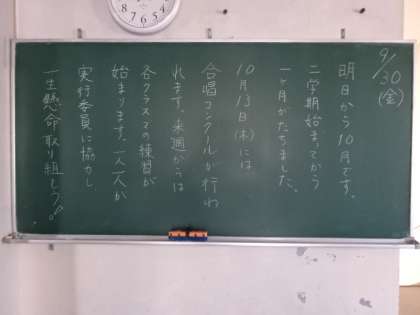 9/30(金)
明日から10月です。
二学期始まってから
一ヶ月がたちました。
10月13日(木)には
合唱コンクールが行わ
れます。来週からは
各クラスでの練習が
始まります。一人一人が
実行委員に協力し
一生懸命取り組もう!!